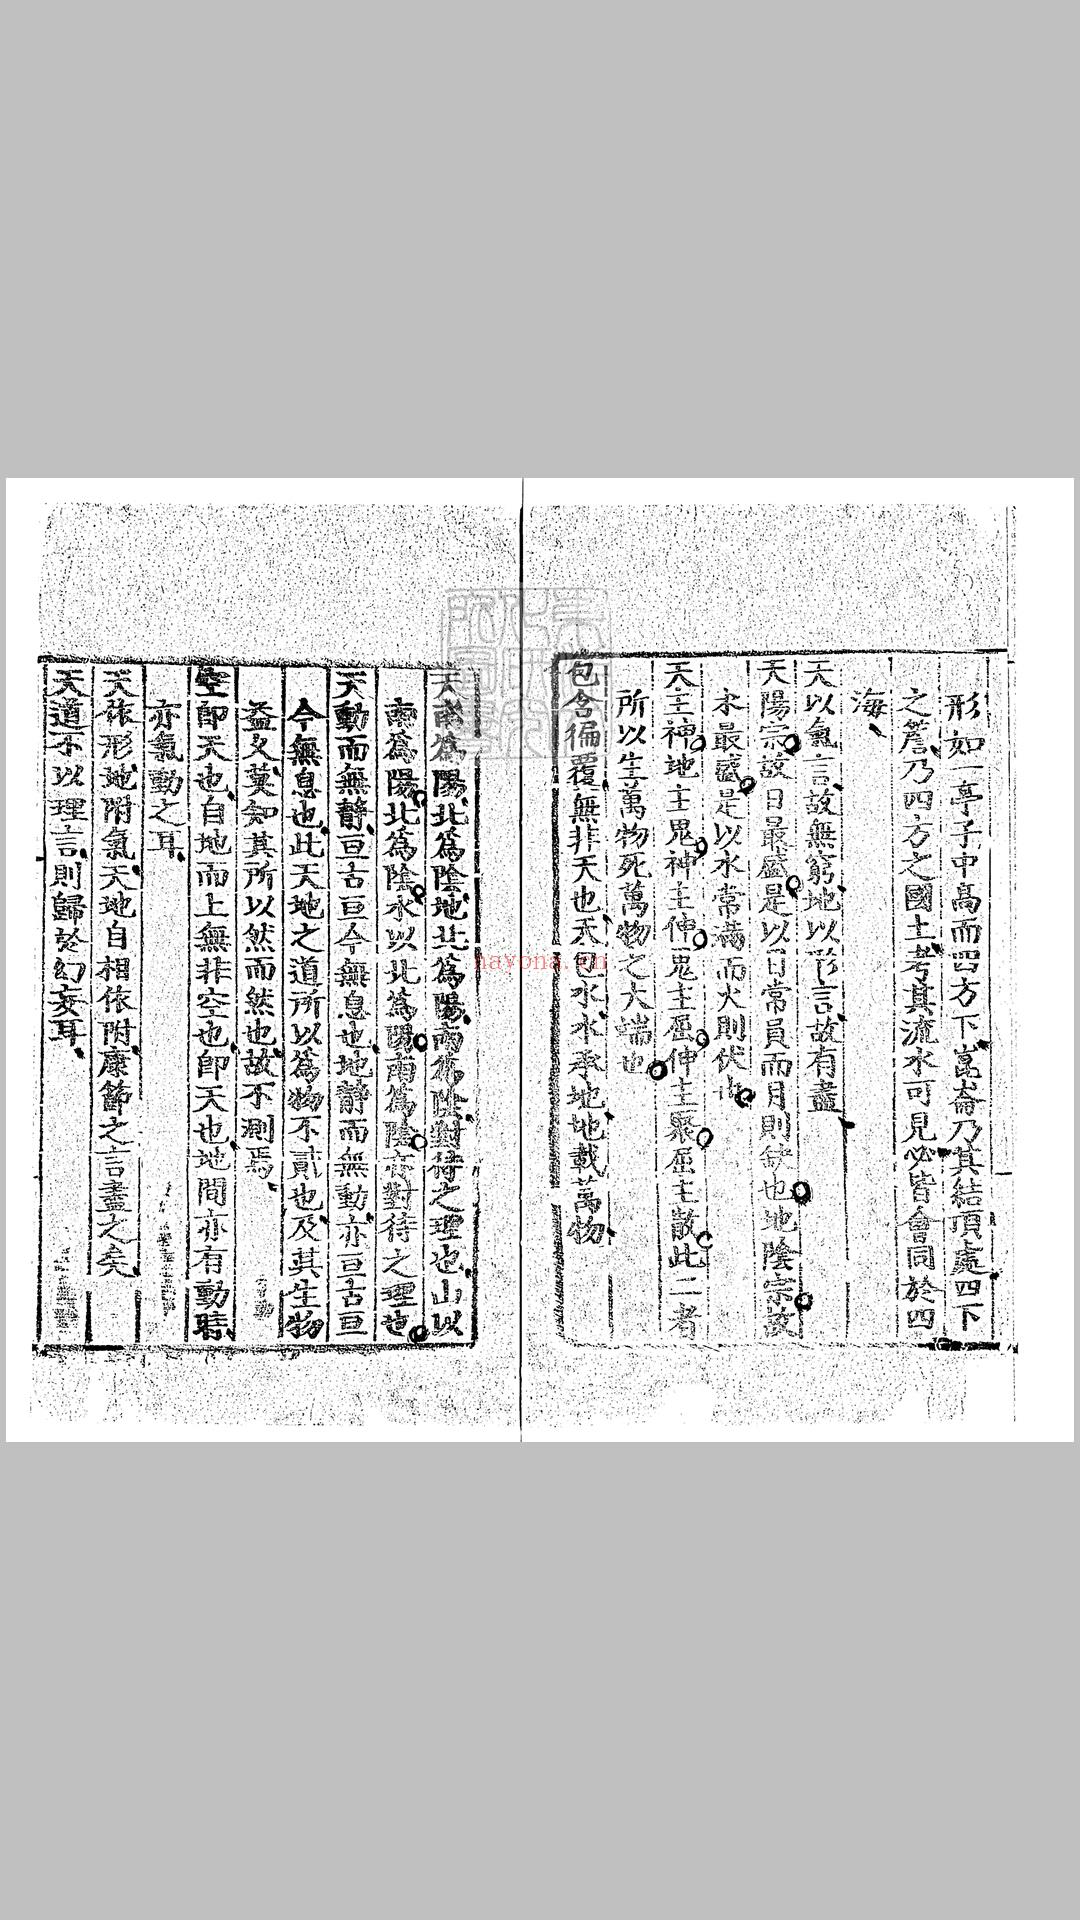 形如一亭子中高而四方下崑崙乃其結頂處四下
之簷乃四方之國土考其流水可見必皆會同於四
海
天以氣言故無窮地以形言故有盡
天陽宗故日最盛是以日常員而月則缺也地陰宗故
水最盛是以水常滿而火則伏也
天主神地主鬼神主伸鬼主屈伸主聚屈主散此二者
所以生萬物死萬物之大端也
包含徧覆無非天也天包水水承地地載萬物
天南爲陽北爲陰地北爲陽南爲陰對待之理也山以
南爲陽北爲陰水以北爲陽南爲陰亦對待之理也
天動而無静亘古亘今無息也地静而無動亦亘古亘
今無息也此天地之道所以爲物不貳也及其生物
益又莫知其所以然而然也故不測焉
空即天也自地而上無非空也即天也地間亦有動時
亦氣動之耳
天依形地附氣天地自相依附康節之言盡之矣
天道不以理言則歸於幻妄耳
nayona.cn